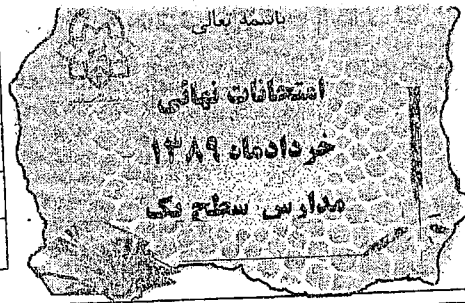 باسمه تعالی
امتحانات نهائی
خردادماه ۱۳۸۹
مدارس سطح یک